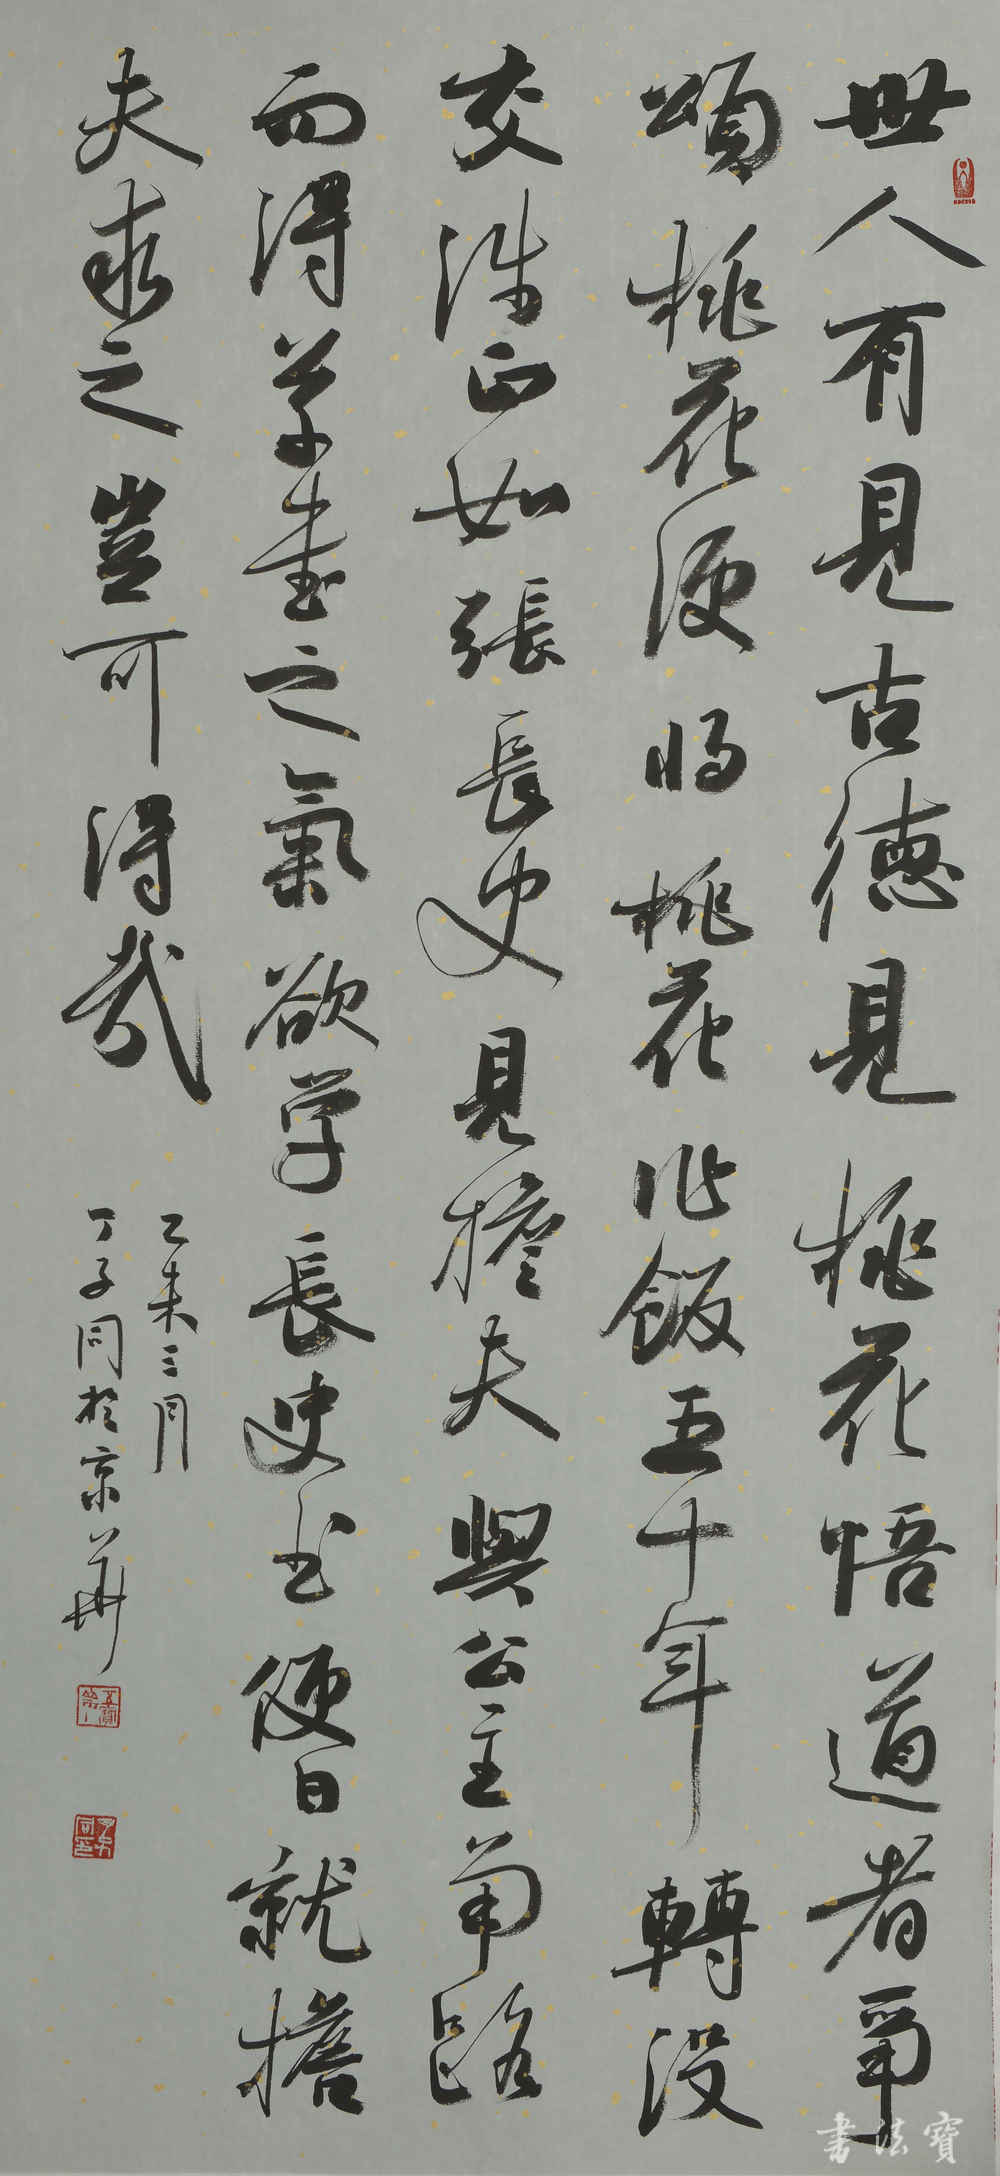 世人有見古德見桃花悟道者爭
頌桃花便將桃花作飯五十年轉沒
交涉正如張長史見擔夫與公主爭路
而得草書之氣欲學長史書便日就擔
夫求之豈可得哉
乙未三月
丁子同於京華
書法寶